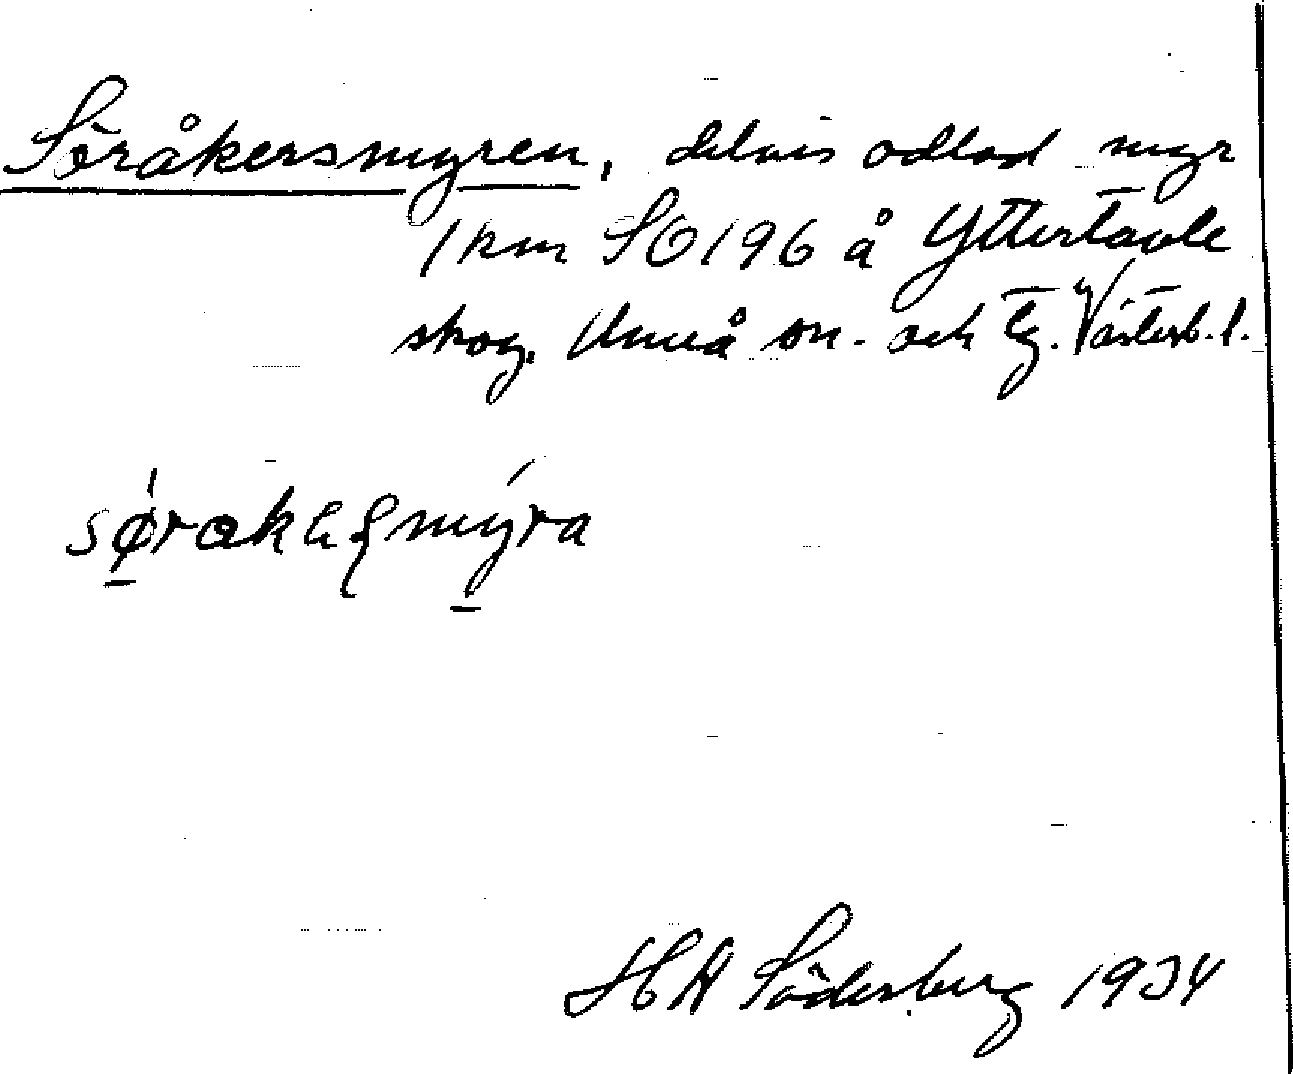 Söråkersmyren, delvis odlad myr
1 km SO 196 å Yttertavle
skog, Umeå sn. och tg. Västerb. l.
HA Söderberg 1934